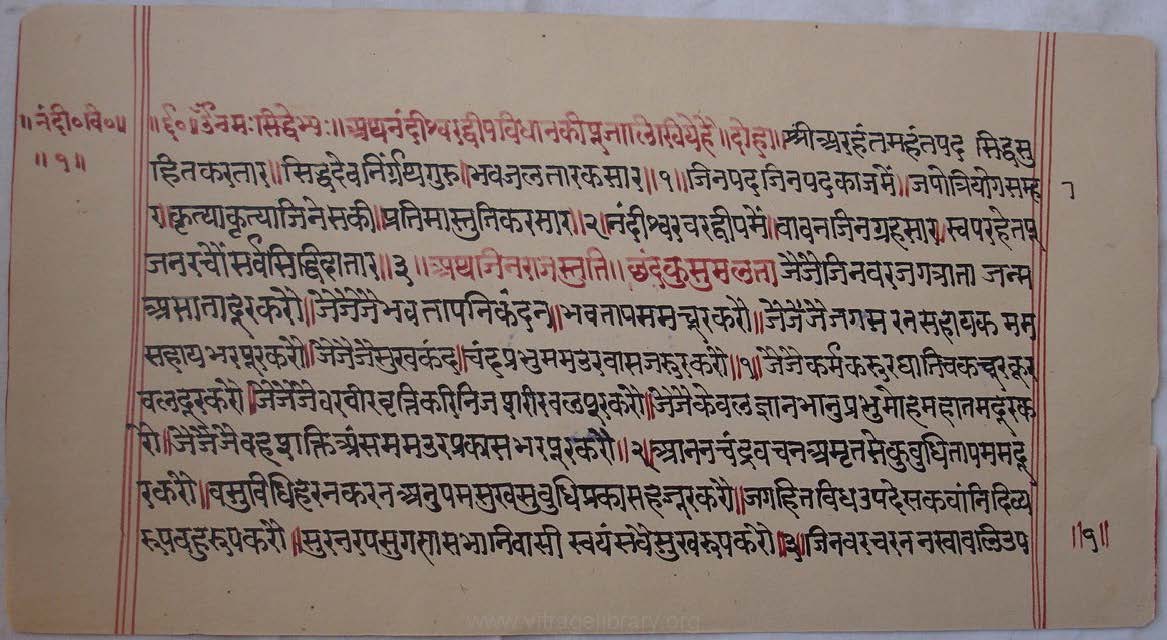 ॥नंदी०वि०॥
॥१॥
॥६०॥ॐनमःसिद्धेभ्यः॥अथनंदीश्वरद्वीपविधानकीपूजालिखियेहै॥दोहा॥श्रीअरहंतमहंतपद सिद्धसु
हितकरतार॥सिद्धदेवनिर्ग्रंथगुरु॥भवजलतारकसार॥१॥जिनपदजिनपदकाजमें॥जपोत्रियोगसम्ह
ाकृत्याकृत्याजिनेसकी॥प्रतिमास्तुतिकरसार॥२॥नंदीश्वरवरद्वीपमें॥वावनजिनग्रहसार॥स्वपरहेतपू
जनरचौंसर्वसिद्धिदातार॥३॥अथाजिनराजस्तुति॥छंदकुसुमलता जैजैजैजिनवरजगत्राता जन्म
असातादूरकरो॥जैजैजैजैभवतापनिकंदन॥भवतापममचूरकरो॥जैजैजैजैजगमरनसहायक मम
सहायभरपूरकरो॥जैजैजैसुखकंद॥चंदप्रभुममउरवासजरुरकरो॥१॥जैजैजैकर्मकरुरघातिवकचूरकूर
वलदूरकरो॥जैजैजैजैवरवीरवृत्तिकीरनिजशरीरवलपूरकरो॥जैजैजैकेवलज्ञानभानुप्रभुमोहमहातमदूरक
रो॥जैजैजैजैवहशक्तिअंसममउरप्रकासभरपूरकरो॥२॥आननचंद्रवचनअमृतसेकुवुधितापममदू
रकरो॥वसुविधिहरनकरनअनुपमसुखसुवुधिप्रकासहजूरकरो॥जगहितविधउपदेसकवांनिदिव्य
रुपवहुरुपकरो॥सुरनरपसुगससभानिवासी स्वयंसेवेसुखरुपकरो॥३॥जिनवरचरननखावलिउप
॥१॥
www.vitragelibrary.org